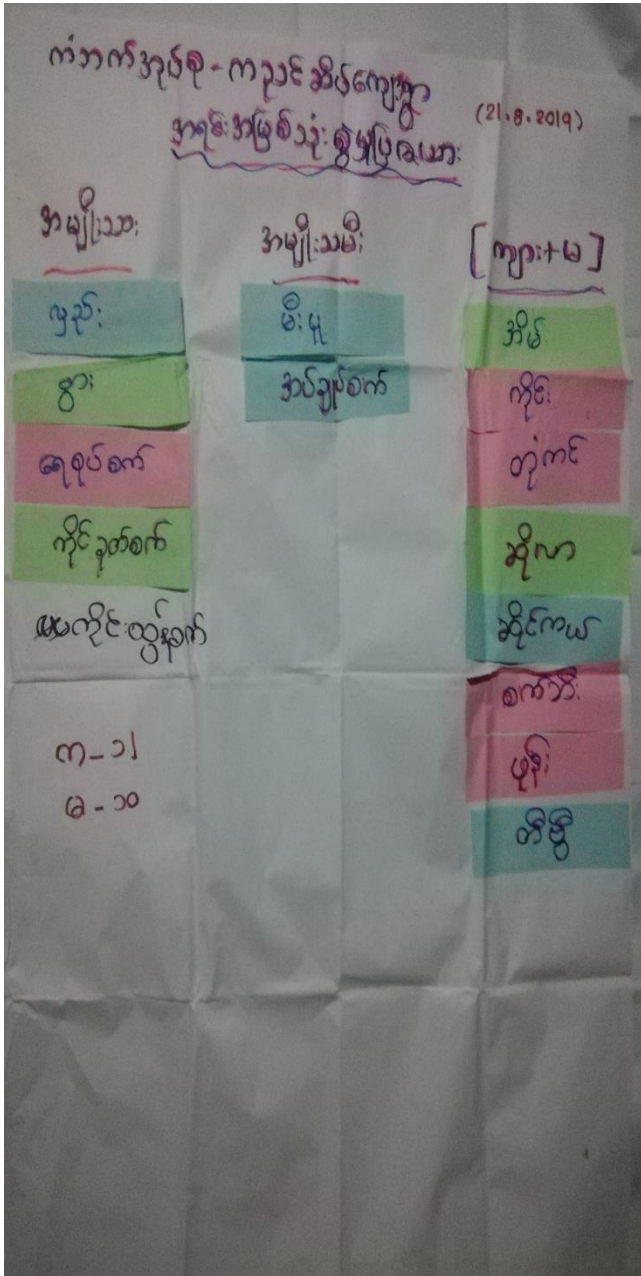 ကံဘက်အုပ်စု - ကညင်ဆိပ်ကျေးရွာ
(21.8.2019)
အရင်းအမြစ်သုံးစွဲမှုပြဇယား
အမျိုးသား
လှည်း
နွား
ရေစုပ်စက်
ကိုင်းခုတ်စက်
က - ၁၂
မ - ၁၀
အမျိုးသမီး
မီးပူ
အပ်ချုပ်စက်
[ကျား+မ]
အိမ်
ကိုင်း
တုံကင်
ဆိုလာ
ဆိုင်ကယ်
စက်ဘီး
ဖုန်း
တီဗွီ